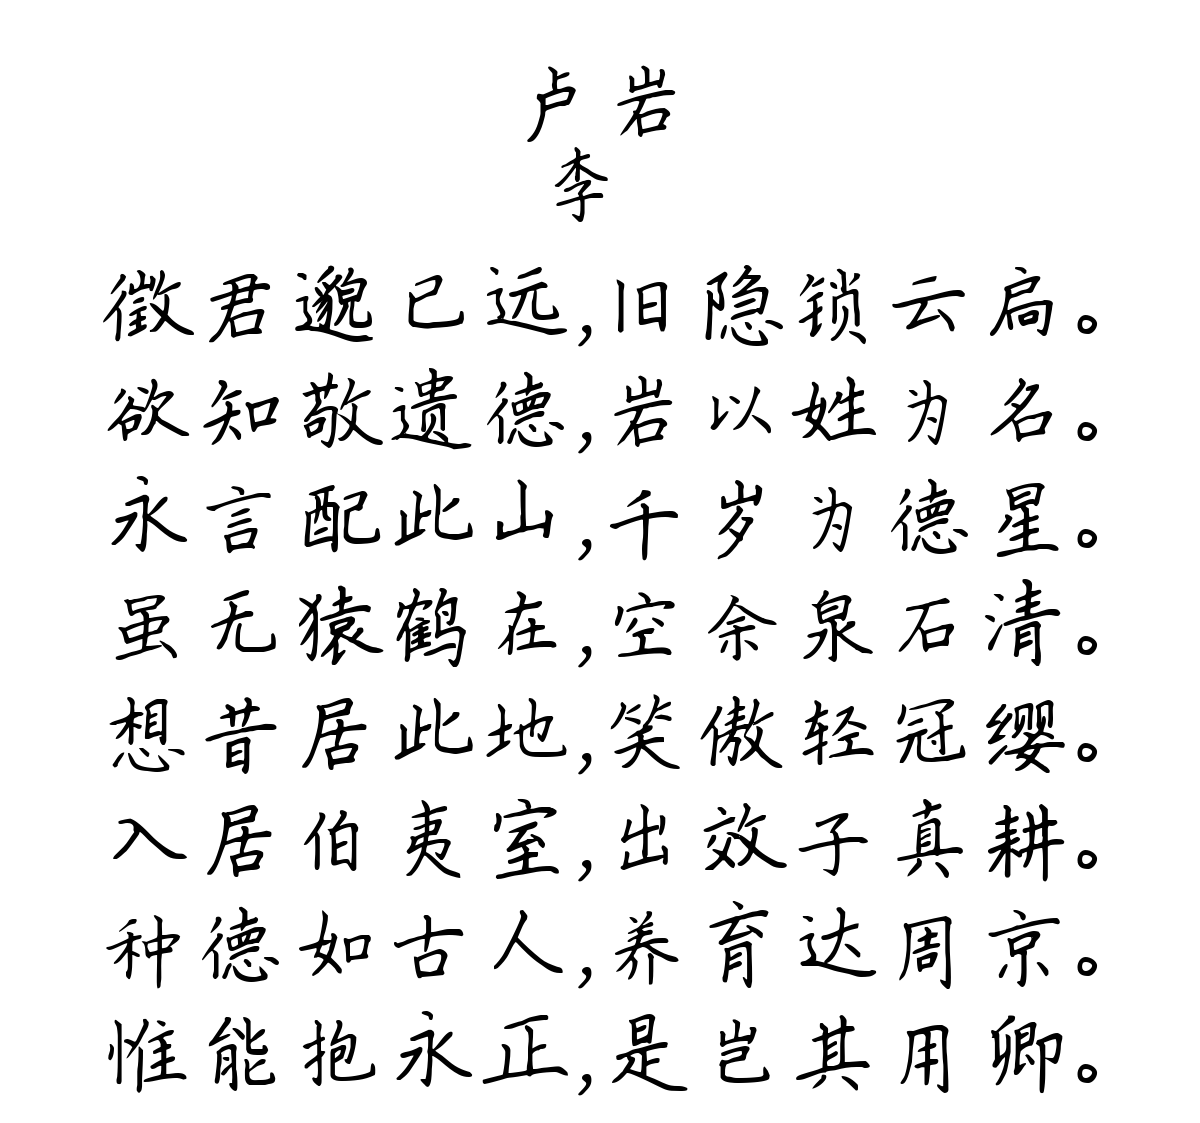 卢岩
李
徵君邈已远,旧隐锁云扃。
欲知敬遗德,岩以姓为名。
永言配此山,千岁为德星。
虽无猿鹤在,空余泉石清。
想昔居此地,笑傲轻冠缨。
入居伯夷室,出效子真耕。
种德如古人,养育达周京。
惟能抱永正,是岂其用卿。